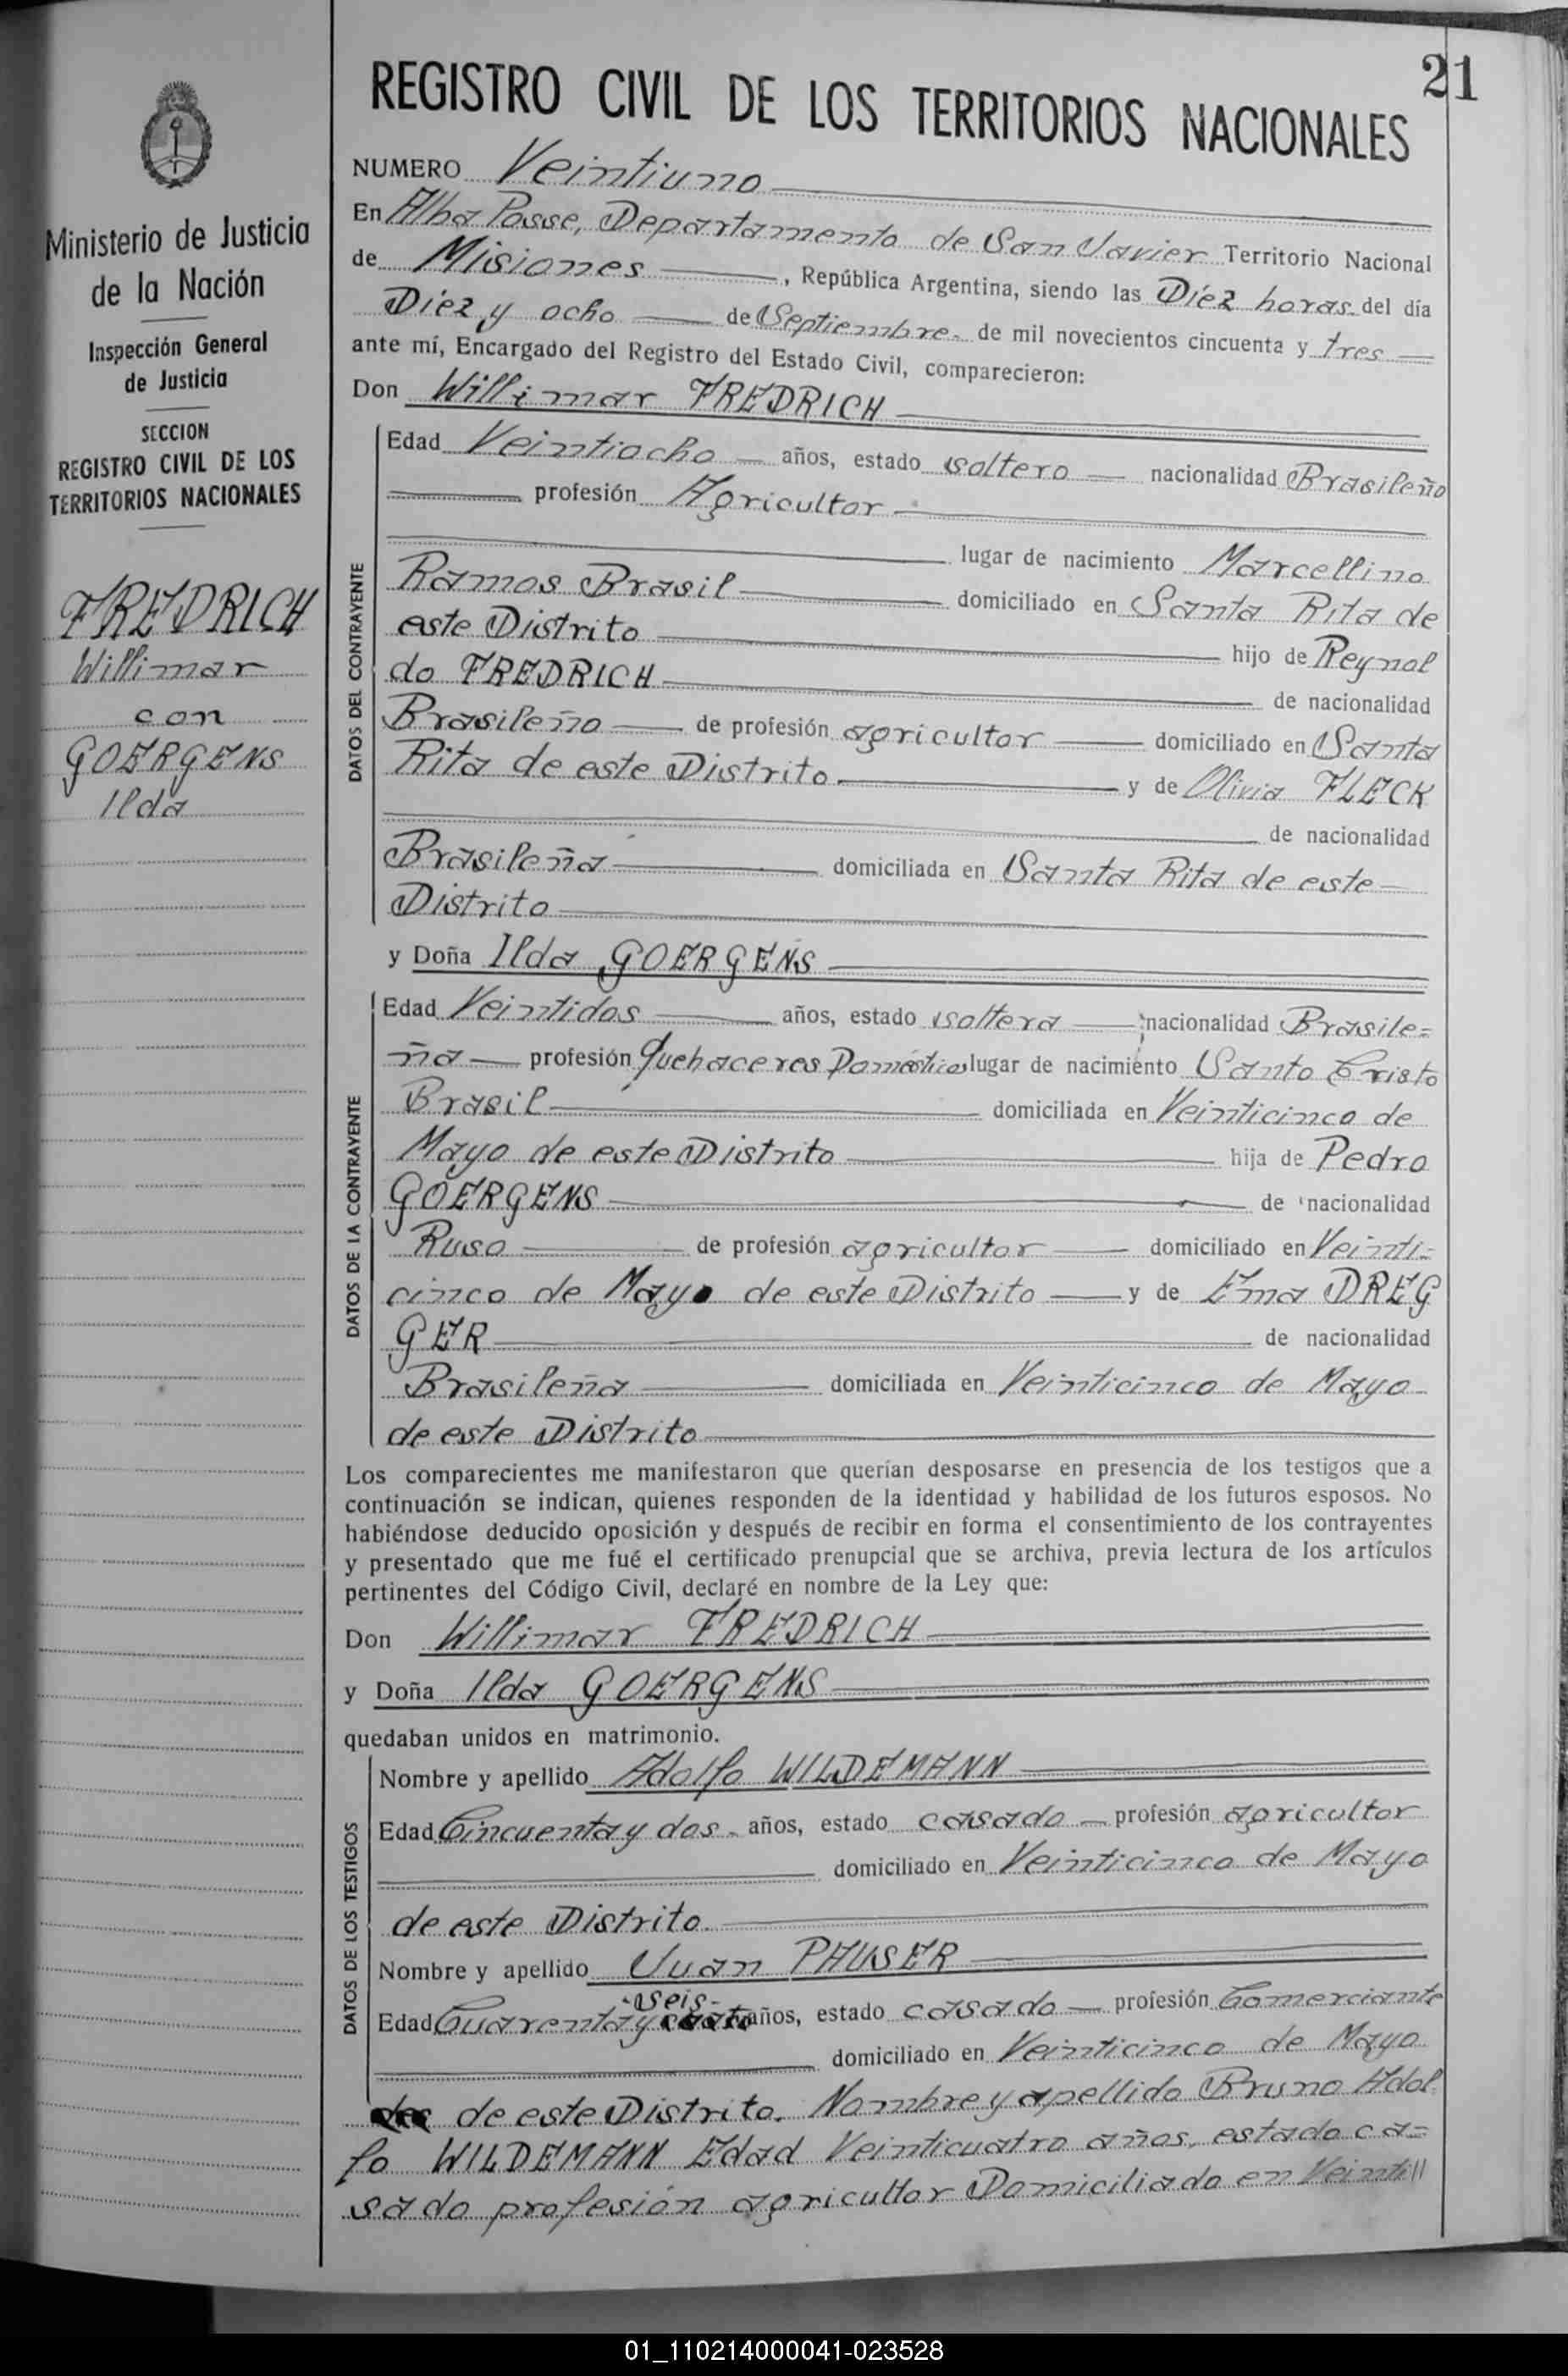 21
REGISTRO CIVIL DE LOS TERRITORIOS NACIONALES
Ministerio de Justicia
de la Nación
Inspección General
de Justicia
SECCION
REGISTRO CIVIL DE LOS
TERRITORIOS NACIONALES
FREDRICH
Willimar
con
GOERGENS
Ilda
NUMERO Veintiuno
En Alba Posse, Departamento de San Javier Territorio Nacional
de Misiones, República Argentina, siendo las Diez horas del día
Diez y ocho de Septiembre de mil novecientos cincuenta y tres
ante mí, Encargado del Registro del Estado Civil, comparecieron:
Don Willimar FREDRICH
DATOS DEL CONTRAYENTE
Edad Veintiocho años, estado soltero nacionalidad Brasileño
profesión Agricultor
lugar de nacimiento Marcellino
Ramos Brasil domiciliado en Santa Rita de
este Distrito hijo de Reynol
do FREDRICH de nacionalidad
Brasileño de profesión agricultor domiciliado en Santa
Rita de este Distrito y de Olivia FLECK
de nacionalidad
Brasileña domiciliada en Santa Rita de este
Distrito
y Doña Ilda GOERGENS
DATOS DE LA CONTRAYENTE
Edad Veintidos años, estado soltera nacionalidad Brasile=
ña profesión Quehaceres Domésticos lugar de nacimiento Santo Cristo
Brasil domiciliada en Veinticinco de
Mayo de este Distrito hija de Pedro
GOERGENS de nacionalidad
Ruso de profesión agricultor domiciliado en Veinti=
cinco de Mayo de este Distrito y de Ema DREG
GER de nacionalidad
Brasileña domiciliada en Veinticinco de Mayo
de este Distrito
Los comparecientes me manifestaron que querían desposarse en presencia de los testigos que a
continuación se indican, quienes responden de la identidad y habilidad de los futuros esposos. No
habiéndose deducido oposición y después de recibir en forma el consentimiento de los contrayentes
y presentado que me fué el certificado prenupcial que se archiva, previa lectura de los artículos
pertinentes del Código Civil, declaré en nombre de la Ley que:
Don Willimar FREDRICH
y Doña Ilda GOERGENS
quedaban unidos en matrimonio.
DATOS DE LOS TESTIGOS
Nombre y apellido Adolfo WILDEMANN
Edad Cincuenta y dos años, estado casado profesión agricultor
domiciliado en Veinticinco de Mayo
de este Distrito.
Nombre y apellido Juan PHUSER
seis
Edad Cuarenta y años, estado casado profesión Comerciante
domiciliado en Veinticinco de Mayo
de este Distrito. Nombre y apellido Bruno Adol
fo WILDEMANN Edad Veinticuatro años, estado ca=
sado profesión agricultor Domiciliado en Veinti
01_110214000041-023528